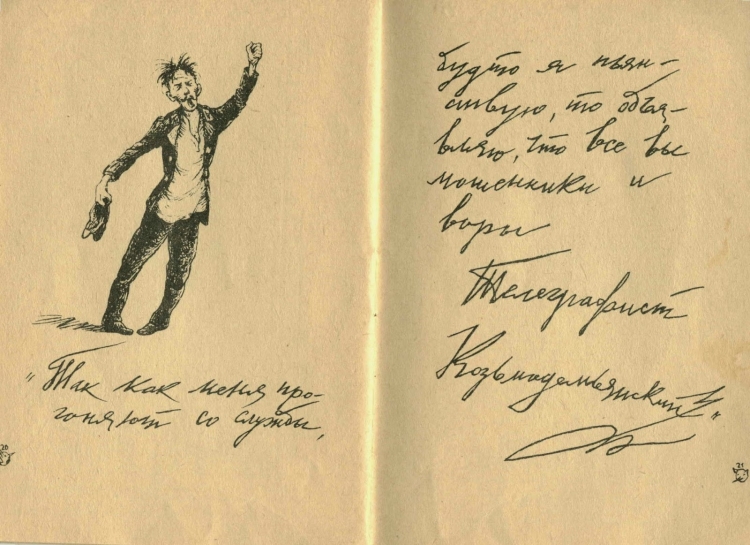 „Так как меня про-
гоняют со службы,
20
будто я пьян-
ствую, то объя-
вляю, что все вы
мошенники и
воры
Телеграфист
Козьмодемьянский"
21